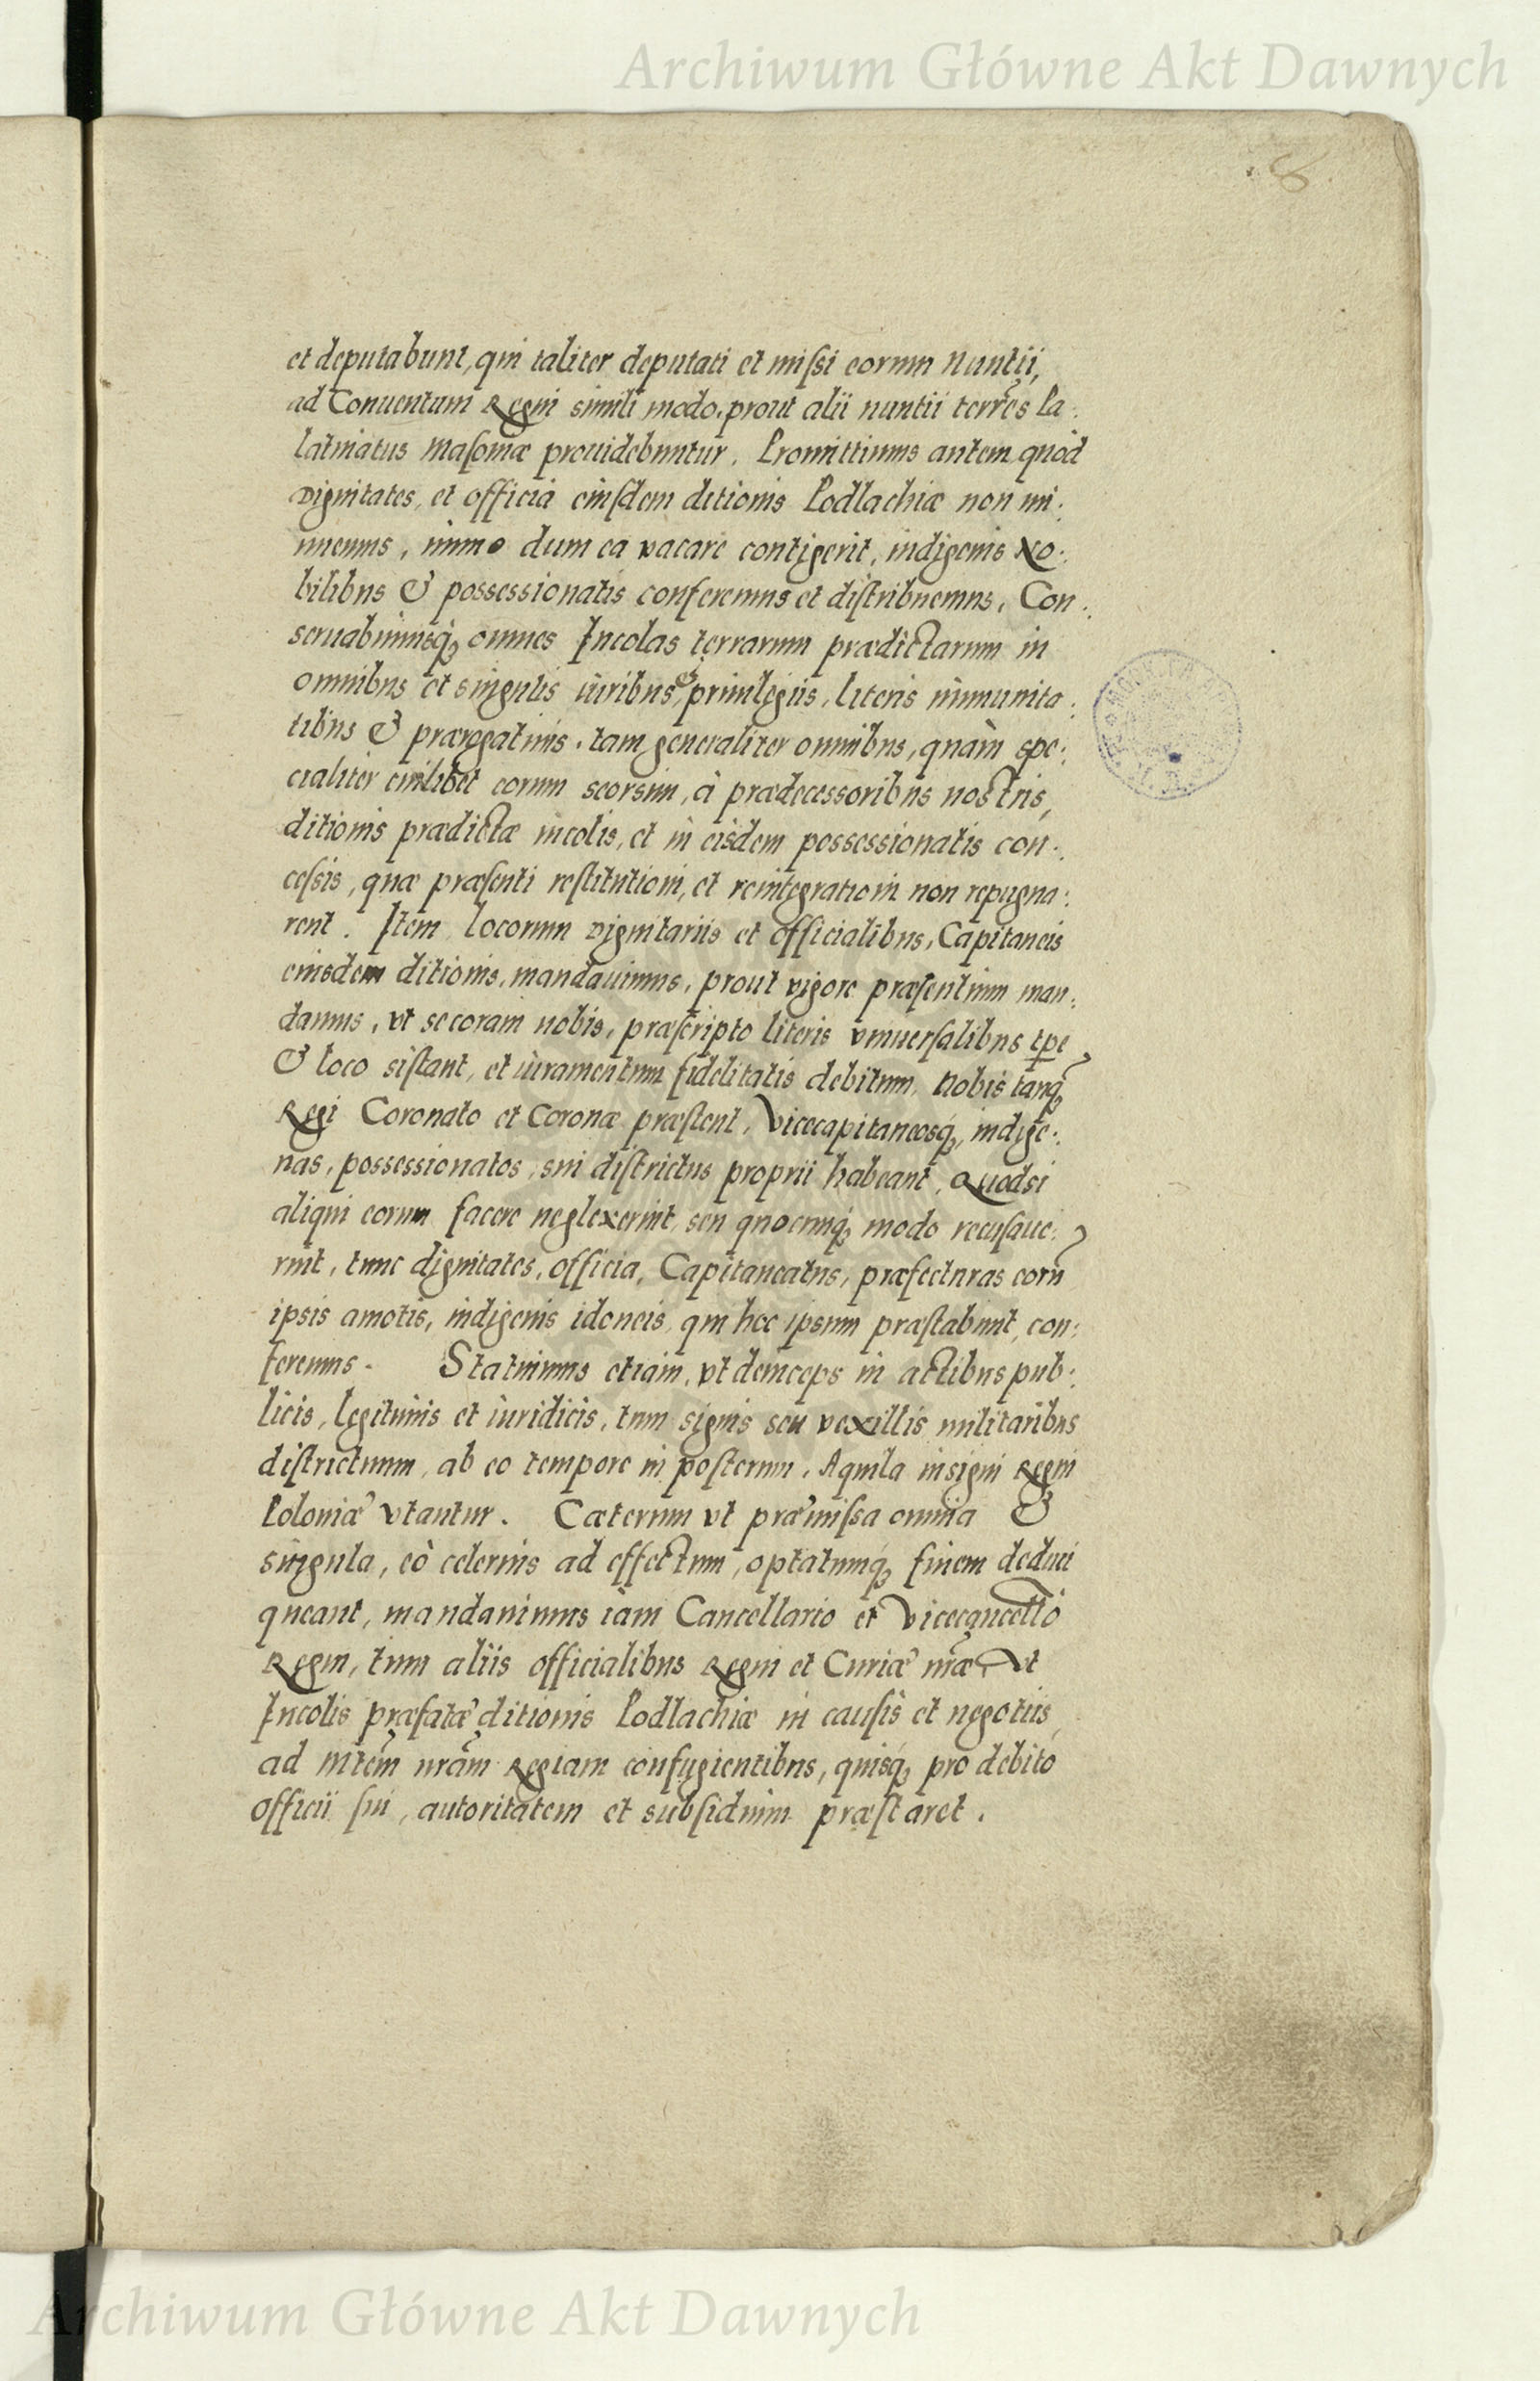 Archiwum Główne Akt Dawnych
8
et deputabunt, qui taliter deputati et missi eorum Nuntii,
ad Conuentum Regni simili modo, prout alii nuntii terrēs Pa:
latinatus Masouiæ prouidebuntur. Promittimus autem quòd
Dignitates, et officia eiusdem ditionis Podlachiæ non mi:
nuemus, immo dum ea vacare contigerit, indigenis No:
bilibus & possessionatis conferemus et distribuemus, Con:
seruabimusq; omnes Incolas terrarum prædictarum in
omnibus et singulis iuribus, & priuilegiis, literis immunita:
tibus & prærogatiuis, tam generaliter omnibus, quàm spe:
cialiter cuilibet eorum seorsim, à prædecessoribus nostris,
ditionis prædictæ incolis, et in eisdem possessionatis con:
cessis, quæ præsenti restitutioni, et reintegrationi non repugna:
rent. Item locorum Dignitariis et officialibus, Capitaneis
eiusdem ditionis, mandauimus, prout vigore præsentium man:
damus, vt se coram nobis, præscripto literis vniuersalibus tpe
& loco sistant, et iuramentum fidelitatis debitum, Nobis tanq;
Regi Coronato et Coronæ præstent, Vicecapitaneosq; indige:
nas, possessionatos, sui districtus proprii habeant, Quodsi
aliqui eorum facere neglexerint, seu quocunq; modo recusaue:
rint, tunc dignitates, officia, Capitaneatus, præfecturas eorū
ipsis amotis, indigenis idoneis, qui hoc ipsum præstabunt, con:
feremus. Statuimus etiam, vt deinceps in actibus pub:
licis, legitimis et iuridicis, tum signis seu vexillis militaribus
districtuum, ab eo tempore in posterum, Aquila insigni Regni
Poloniæ vtantur. Cæterum vt præmissa omnia &
singula, eò celerius ad effectum, optatumq; finem deduci
queant, mandauimus iam Cancellario et Vicecancellō
Regni, tum aliis officialibus Regni et Curiæ nr̄æ, Vt
Incolis præfatæ ditionis Podlachiæ in causis et negotiis,
ad Mtēm nrām Regiam confugientibus, quisq; pro debito
officii sui, autoritatem et subsidium præstaret.
Archiwum Główne Akt Dawnych